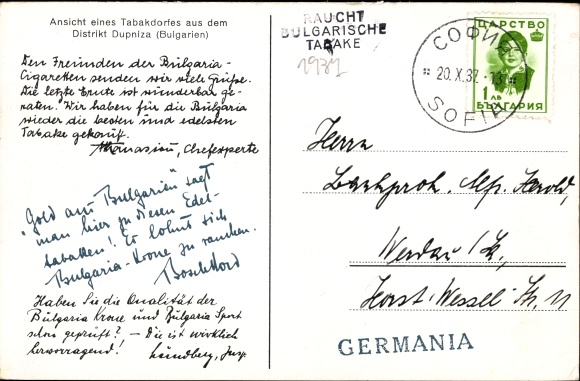 Ansicht eines Tabakdorfes aus dem
Distrikt Dupniza (Bulgarien)
Den Freunden der Bulgaria-
Cigaretten senden wir viele Grüße.
Die letzte Ernte ist wunderbar ge-
raten. Wir haben für die Bulgaria
wieder die besten und edelsten
Tabake gekauft.
Athanasiou, Chefexperte
"Gold aus Bulgarien" sagt
man hier zu diesen Edel-
tabaken! Es lohnt sich
Bulgaria-Krone zu rauchen.
Haben Sie die Qualität der
Bulgaria Krone und Bulgaria Sport
schon geprüft? – Die ist wirklich
hervorragend! Lundberg, Insp.
RAUCHT
BULGARISCHE
TABAKE
1937
СОФИЯ
20.X.37.-13
SOFIA
ЦАРСТВО
1 ЛВ
БЪЛГАРИЯ
Herrn
Alf.
Werdau i/Sa,
Horst-Wessel-Str. 11
GERMANIA